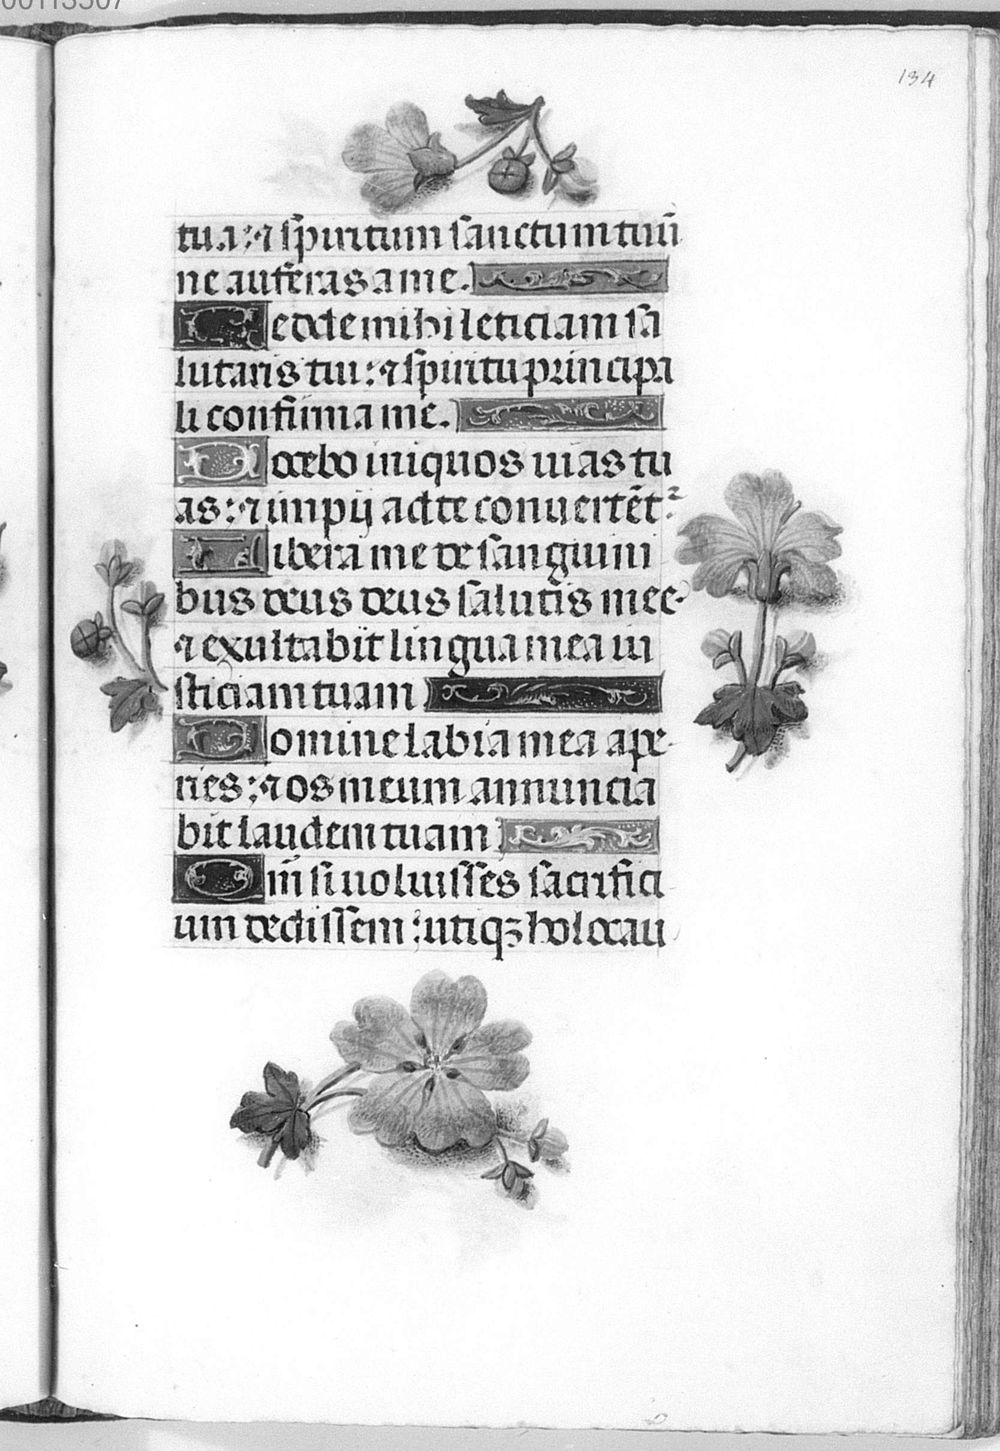 00113507
134
tua: ⁊ spiritum sanctum tuū
ne auferas a me.
Redde mihi leticiam sa
lutaris tui: ⁊ spiritu principa
li confirma me.
Docebo iniquos uias tu
as: ⁊ impij ad te conuertēt᷑
Libera me de sanguini
bus deus deus salutis mee
⁊ exultabit lingua mea iu
sticiam tuam
Domine labia mea ape
ries: ⁊ os meum annuncia
bit laudem tuam
Qm̄ si uoluisses sacrifici
um dedissem: utiqꝫ holocau